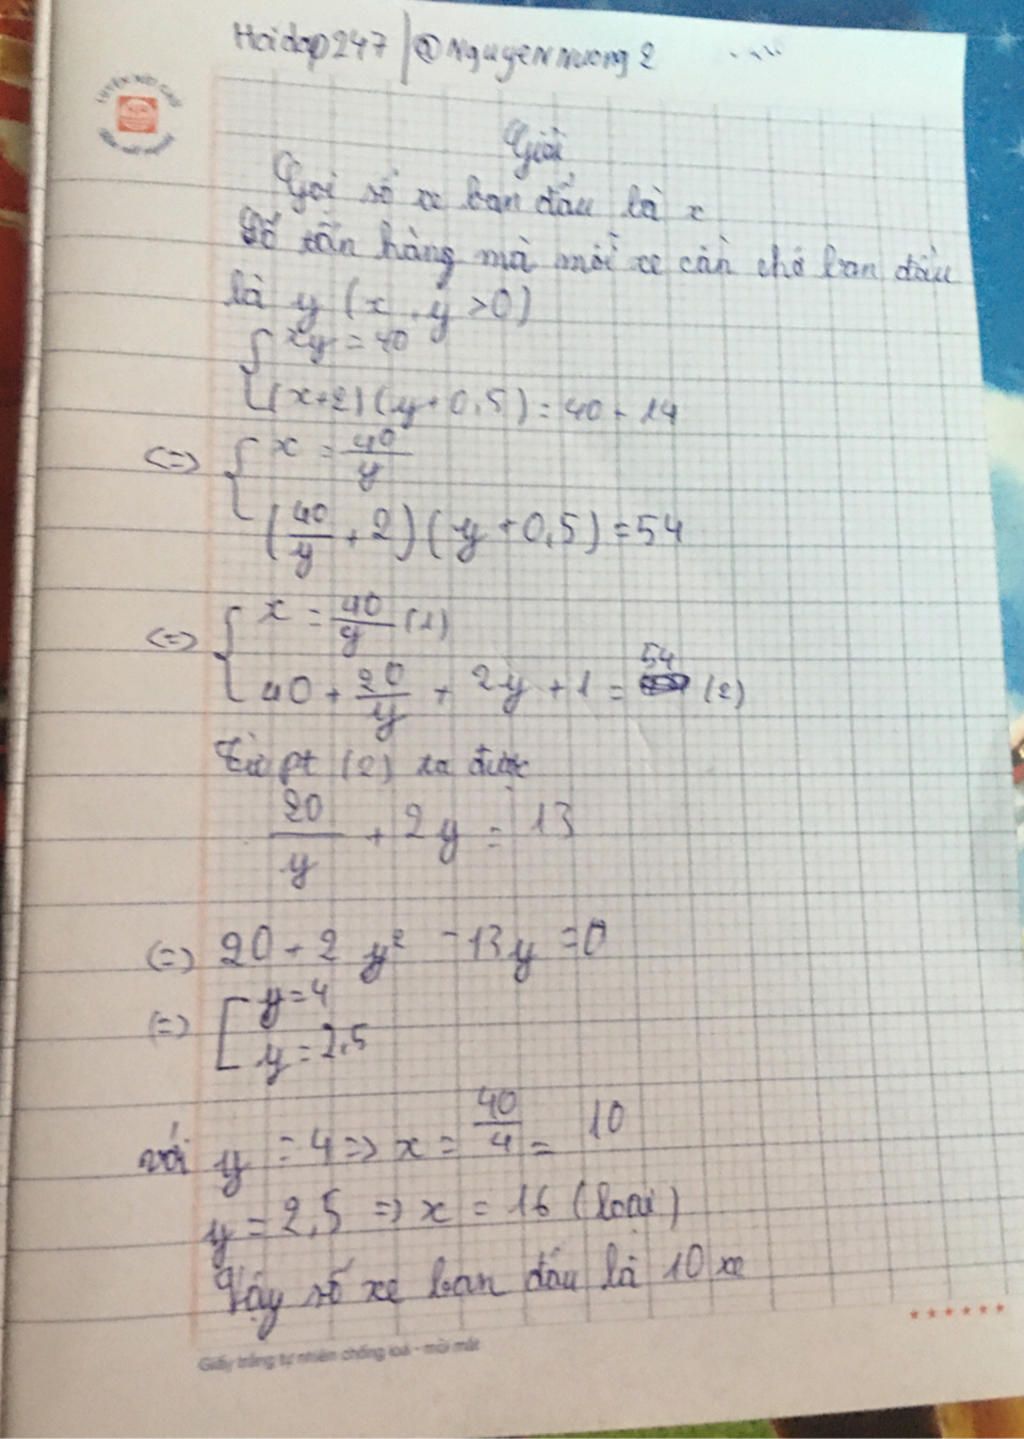 Hoidap247 | @Nguyennuong2
LUYỆN NÉT CHỮ
Giải
Gọi số xe ban đầu là x
Số tấn hàng mà mỗi xe cần chở ban đầu
là y (x, y > 0)
{ xy = 40
(x+2)(y+0,5) = 40+14
<=> { x = 40/y
(40/y + 2)(y+0,5) = 54
<=> { x = 40/y (1)
40 + 20/y + 2y + 1 = 54 (2)
Từ pt (2) ta được
20/y + 2y = 13
(=) 20 + 2y² - 13y = 0
(=) [ y = 4
y = 2,5
với y = 4 => x = 40/4 = 10
y = 2,5 => x = 16 (loại)
Vậy số xe ban đầu là 10 xe
Giấy trắng tự nhiên chống loá - mỏi mắt